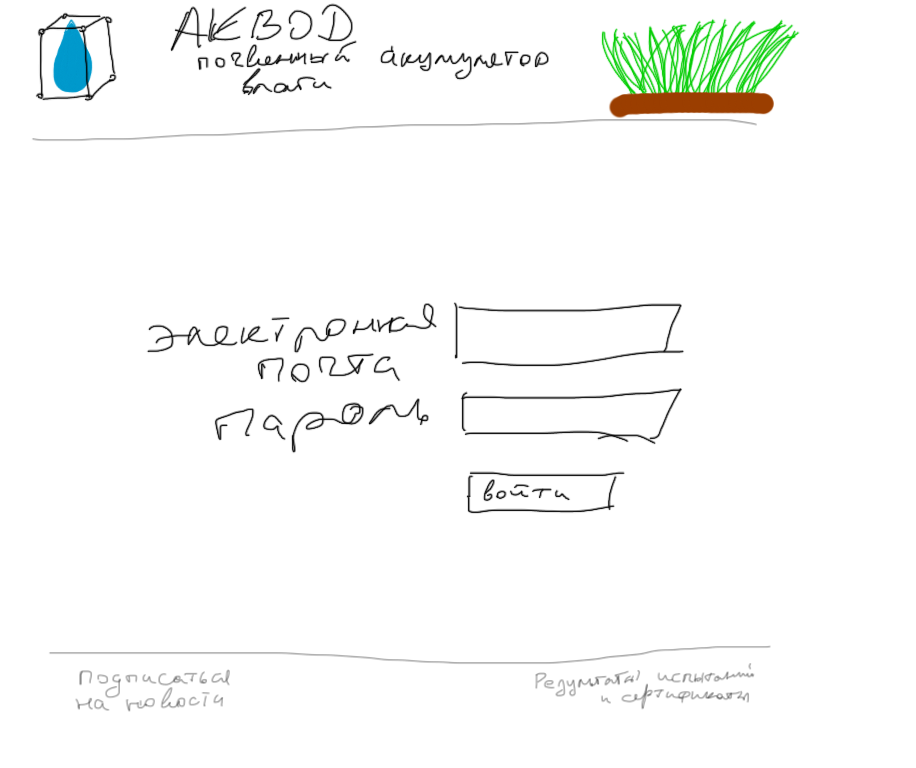 АКВОД
почвенный акумулятор
влаги
электронная
почта
Пароль
войти
Подписаться
на новости
Результаты испытаний
и сертификаты